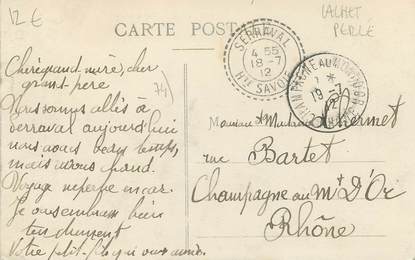 12 €
CACHET
PERLÉ
CARTE POST
SERRAVAL
4 55
18-7
12
Hte SAVOIE
CHAMPAGNE AU MONT D'OR
19-7
74
Chère grand-mère, cher
grand-père
Nous sommes allés à
Serraval aujourd'hui
nous avons beau temps,
mais avons chaud.
Voyage superbe en car.
Je vous embrasse bien
tendrement
Votre petit-fils qui vous aime.
Monsieur Madame Thermet
rue Bartet
Champagne au Mt D'Or
Rhône